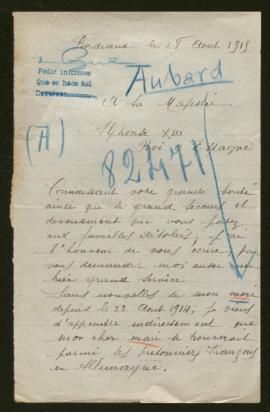 le 18 Aout 1915
Pedir informes
Que se hace así
Devuelven
Aubard
A Sa Majesté
(A)
Alphonse XIII
Roi d'Espagne
82471
Connaissant votre grande bonté
ainsi que le grand secours et
dévouement que vous portez
aux familles j'ai
l'honneur de vous écrire pour
vous demander moi aussi un
bien grand service
Sans nouvelles de mon mari
depuis le 22 Aout 1914, je viens
d'apprendre indirectement que
mon cher mari se trouverait
parmi les prisonniers Français
en Allemagne.